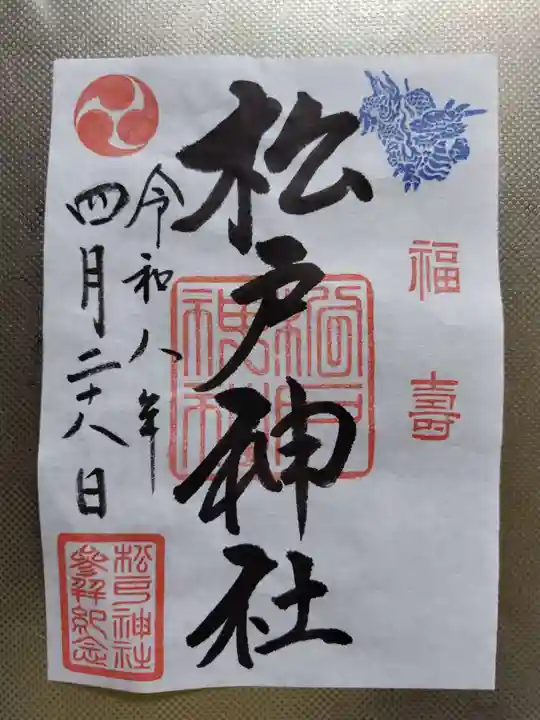 福壽
松戸神社
令和八年
四月二十八日
松戸神社
參拜紀念